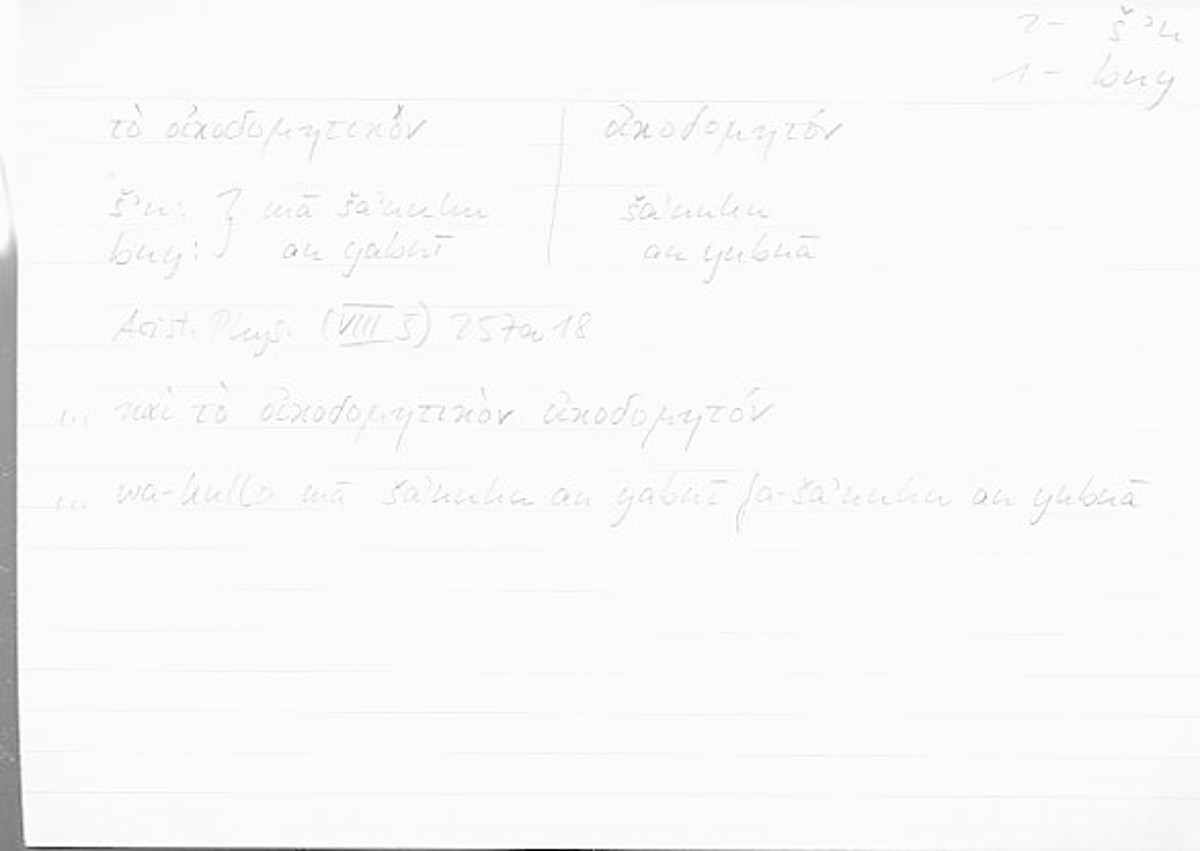 2- šʾn
1- bny
τὸ οἰκοδομητικόν | οἰκοδομητόν
šʾn: } mā šaʾnuhu | šaʾnuhu
bny: } an yabnī | an yubnā
Arist. Phys. (VIII 5) 257a18
... καὶ τὸ οἰκοδομητικὸν οἰκοδομητόν
... wa-kullu mā šaʾnuhu an yabnī fa-šaʾnuhu an yubnā